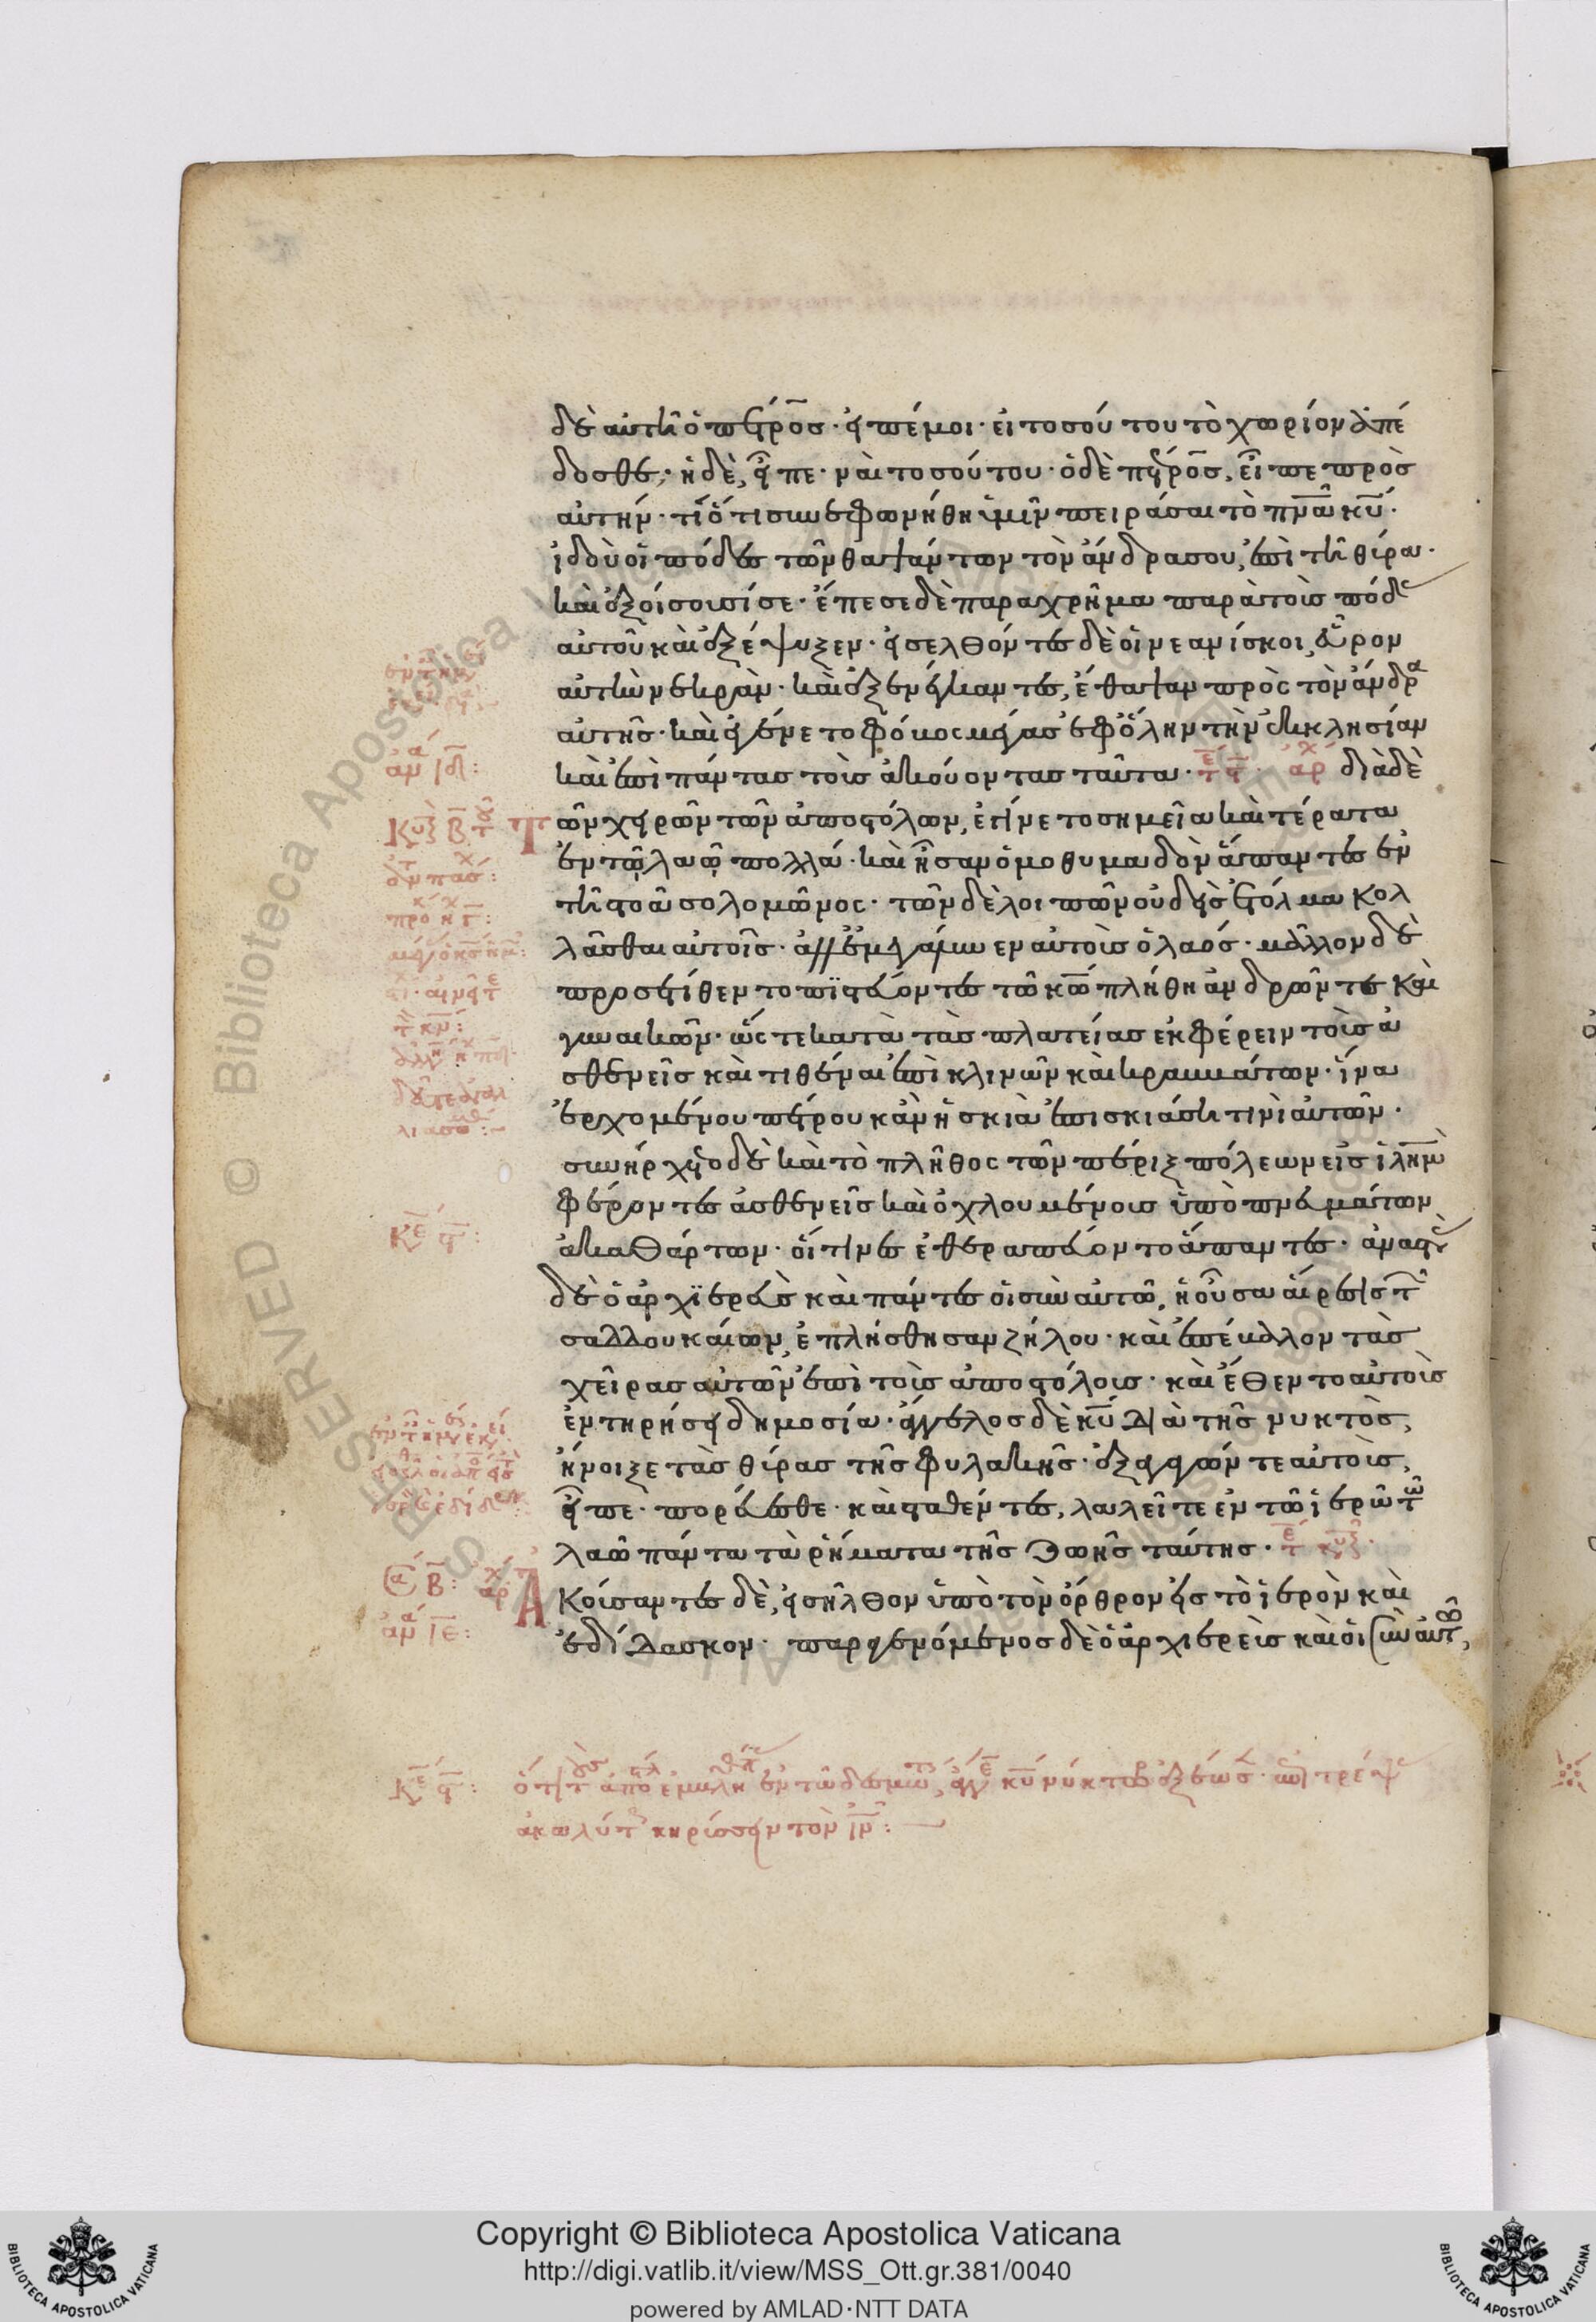 δὲ αὐτῆ ὁ πέτρος· εἰπέ μοι· εἰ τοσούτου τὸ χωρίον ἀπέ
δοσθε; ἡ δὲ, εἶπε· ναὶ τοσούτου· ὁ δὲ πέτρος, εἶπε πρὸς
αὐτήν· τί ὅτι συνεφωνήθη ὑμῖν πειράσαι τὸ πνᾶ κυ·
ἰδοὺ οἱ πόδες τῶν θαψάντων τὸν ἄνδρα σου, ἐπὶ τῆ θύρα·
καὶ ἐξοίσουσί σε· ἔπεσε δὲ παραχρῆμα παρὰ τοὺς πόδ
αὐτοῦ καὶ ἐξέψυξεν· εἰσελθόντες δὲ οἱ νεανίσκοι, εὗρον
αὐτὴν νεκρὰν· καὶ ἐξενείκαντες, ἔθαψαν πρὸς τὸν ἄνδρα
αὐτῆς· καὶ ἐγένετο φόβος μέγας ἐφ ὅλην τὴν ἐκκλησίαν
καὶ ἐπὶ πάντας τοὺς ἀκούοντας ταῦτα· διὰ δὲ
τῶν χειρῶν τῶν ἀποστόλων, ἐγίνετο σημεῖα καὶ τέρατα
ἐν τῷ λαῷ πολλά· καὶ ἦσαν ὁμοθυμαδὸν ἅπαντες ἐν
τῆ στοᾶ σολομῶνος· τῶν δὲ λοιπῶν οὐδεὶς ἐτόλμα κολ
λᾶσθαι αὐτοῖς· ἀλλ ἐμεγάλυνεν αὐτοὺς ὁ λαός· μᾶλλον δὲ
προσετίθεντο πιστεύοντες τῶ κω πλήθη ἀνδρῶν τε καὶ
γυναικῶν· ὥστε κατὰ τὰς πλατείας ἐκφέρειν τοὺς ἀ
σθενεῖς καὶ τιθέναι ἐπὶ κλινῶν καὶ κραμμάτων· ἵνα
ἐρχομένου πέτρου κἀν ἡ σκιὰ ἐπισκιάση τινὶ αὐτῶν·
συνήρχετο δὲ καὶ τὸ πλῆθος τῶν πέριξ πόλεων εἰς ἱλημ
φέροντες ἀσθενεῖς καὶ ὀχλουμένους ὑπὸ πνευμάτων
ἀκαθάρτων· οἵτινες ἐθεραπεύοντο ἅπαντες· ἀναστὰς
δὲ ὁ ἀρχϊερεὺς καὶ πάντες οἱ σὺν αὐτῶ, ἡ οὖσα αἵρεσις τ
σαλλουκαίων, ἐπλήσθησαν ζήλου· καὶ ἐπέβαλον τὰς
χεῖρας αὐτῶν ἐπὶ τοὺς ἀποστόλους· καὶ ἔθεντο αὐτοὺς
ἐν τηρήσει δημοσία· ἄγγελος δὲ κυ διὰ τῆς νυκτὸς,
ἤνοιξε τὰς θύρας τῆς φυλακῆς· ἐξαγαγών τε αὐτοὺς,
εἶπε· πορεύεσθε· καὶ σταθέντες, λαλεῖτε ἐν τῶ ἱερῶ τῶ
λαῶ πάντα τὰ ῥήματα τῆς ζωῆς ταύτης·
Ακούσαντες δὲ, εἰσῆλθον ὑπὸ τὸν ὄρθρον εἰς τὸ ἱερὸν καὶ
ἐδίδασκον· παραγενόμενος δὲ ὁ ἀρχιερεὺς καὶ οἱ σὺν αὐτ,
Copyright © Biblioteca Apostolica Vaticana
http://digi.vatlib.it/view/MSS_Ott.gr.381/0040
powered by AMLAD·NTT DATA